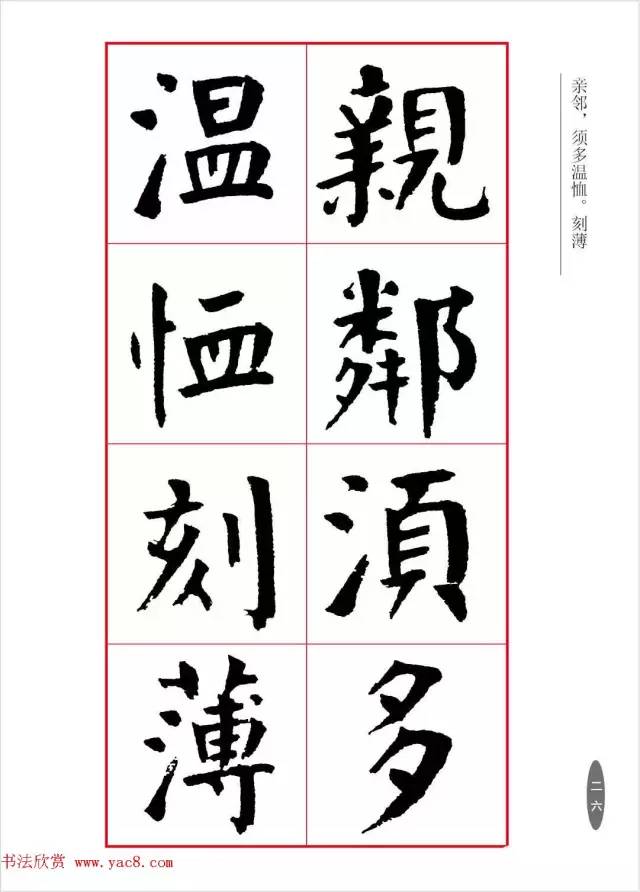 親鄰須多
温恤刻薄
亲邻，须多温恤。刻薄
二六
书法欣赏 www.yac8.com